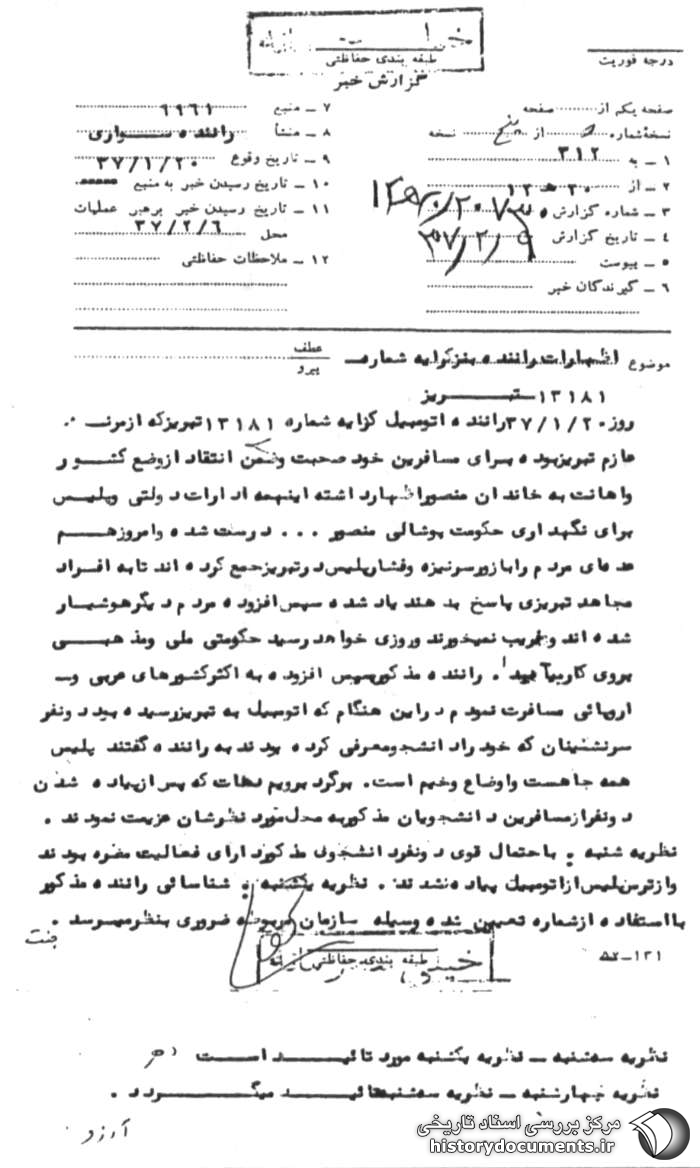 خیلی محرمانه
طبقه بندی حفاظتی
گزارش خبر
درجه فوریت
صفحه یکم از صفحه
نسخهٔ شماره از پنج نسخه
۱ ــ به ۳۱۲
۲ ــ از ۲۰ هـ ۱۲
۳ ــ شماره گزارش
۴ ــ تاریخ گزارش ۳۷/۲/۶
۵ ــ پیوست
۶ ــ گیرندگان خبر
۷ ــ منبع ۶۹۶۱
۸ ــ منشأ راننده سواری
۹ ــ تاریخ وقوع ۳۷/۱/۲۰
۱۰ ــ تاریخ رسیدن خبر به منبع
۱۱ ــ تاریخ رسیدن خبر برهبر عملیات
محل ۳۷/۲/۶
۱۲ ــ ملاحظات حفاظتی
موضوع اظهارات راننده بنزکرایه شماره عطف
پیرو
۱۳۱۸۱ــ تبریز
روز ۳۷/۱/۲۰ راننده اتومبیل کرایه شماره ۱۳۱۸۱ تبریزکه ازمرند
عازم تبریزبوده برای مسافرین خود صحبت وضمن انتقاد ازوضع کشور
واهانت به خاندان منصوراظهارداشته اینهمه ادارات دولتی وپلیس
برای نگهداری حکومت پوشالی منصور ... درست شده وامروزهم
عده‌ای مردم رابازورسرنیزه وفشارپلیس درتبریزجمع کرده اند تابه افراد
مجاهد تبریزی پاسخ بدهند یاد شده سپس افزوده مردم دیگرهوشیار
شده اند وفریب نمیخورند وروزی خواهد رسید حکومتی ملی ومذهبی
بروی کاربیاید. راننده مذکورسپس افزوده به اکثرکشورهای عربی و
اروپائی مسافرت نمودم دراین هنگام که اتومبیل به تبریزرسیده بود دونفر
سرنشینان که خودرا دانشجومعرفی کرده بودند به راننده گفتند پلیس
همه جاهست واوضاع وخیم است. برگرد برویم دهات که پس ازپیاده شدن
دونفرازمسافرین دانشجویان مذکوربه محل مورد نظرشان عزیمت نمودند.
نظریه شنبه : باحتمال قوی دونفردانشجوی مذکوردارای فعالیت مضره بودند
وازترس پلیس ازاتومبیل پیاده نشدند. نظریه یکشنبه : شناسائی راننده مذکور
بااستفاده ازشماره تعیین شده وسیله سازمان مربوطه ضروری بنظرمیرسد.
جنت
۱۳۱ــ۵۲
خیلی محرمانه
طبقه بندی حفاظتی
نظریه سه‌شنبه ــ نظریه یکشنبه مورد تائید است
نظریه چهارشنبه ــ نظریه سه‌شنبه تائید میگردد.
آرزو
مرکز بررسی اسناد تاریخی
historydocuments.ir